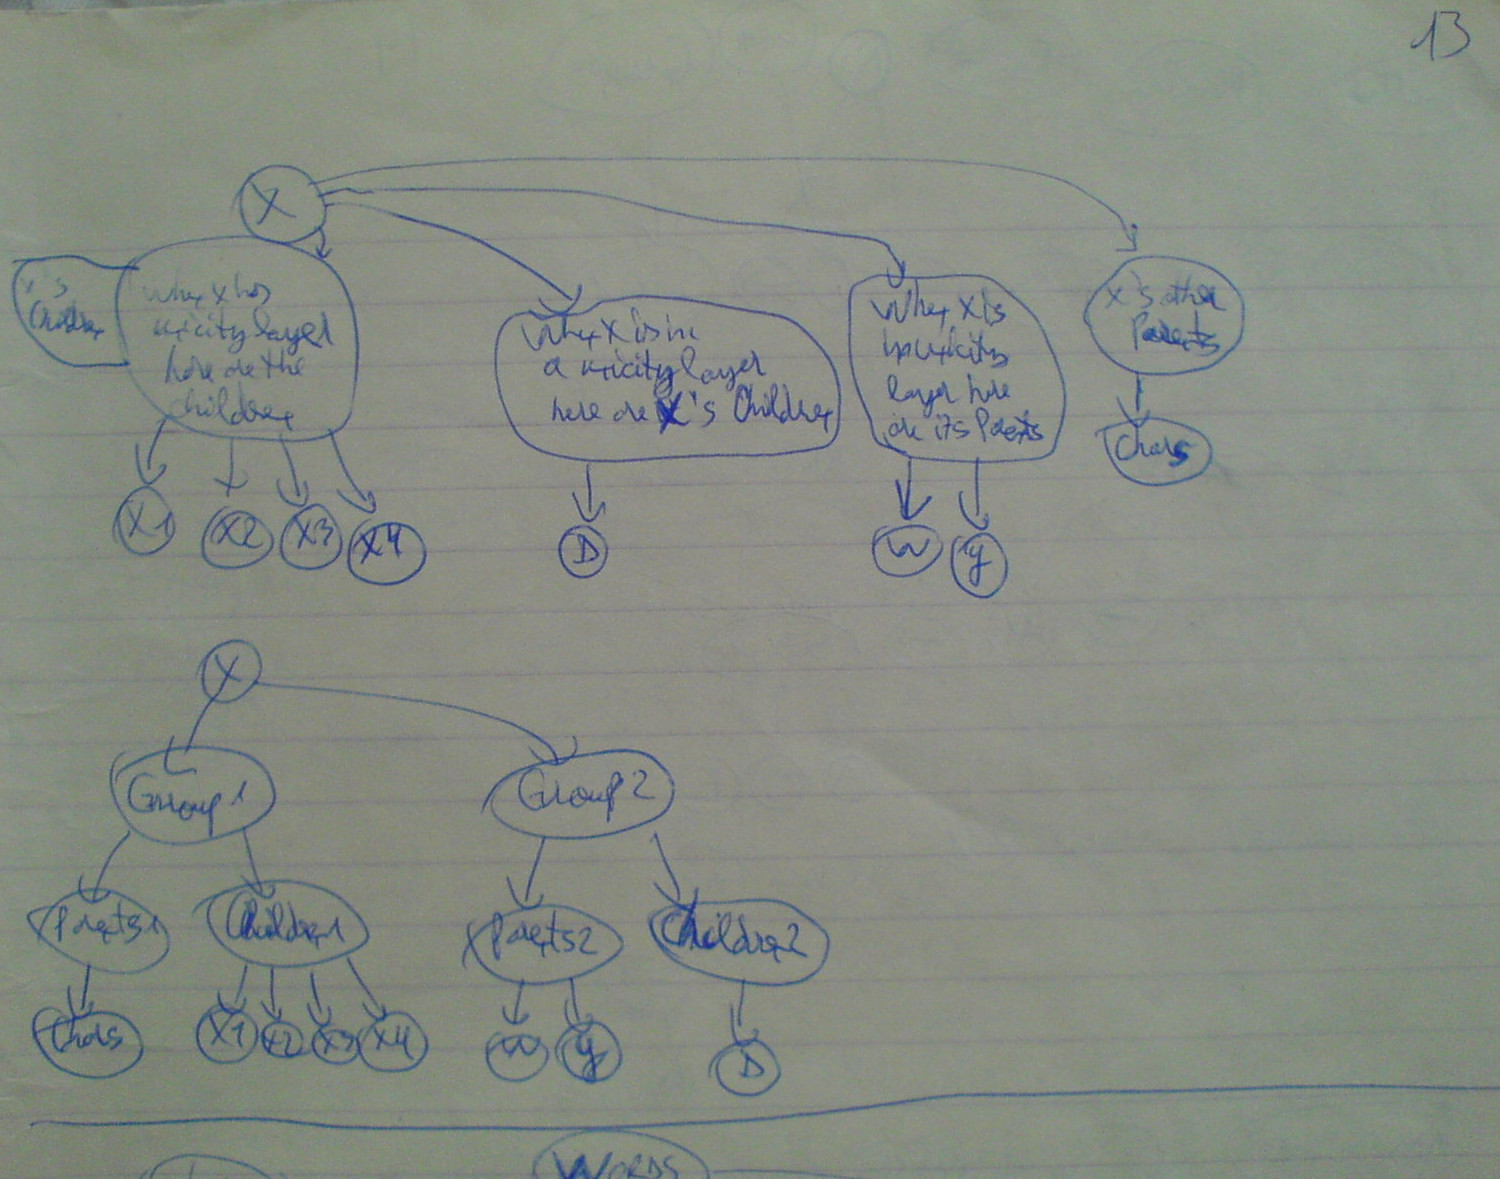 13
X
X's
Children
when X has
unicity layer
here are the
children
when X is in
a unicity layer
here are X's Children
when X is
in unicity
layer here
are its Parents
X's other
Parents
Chars
X1 X2 X3 X4
D
W y
X
Group 1
Group 2
Parents1
Children1
Parents2
Children2
Chars
X1 X2 X3 X4
W y
D
WORDS